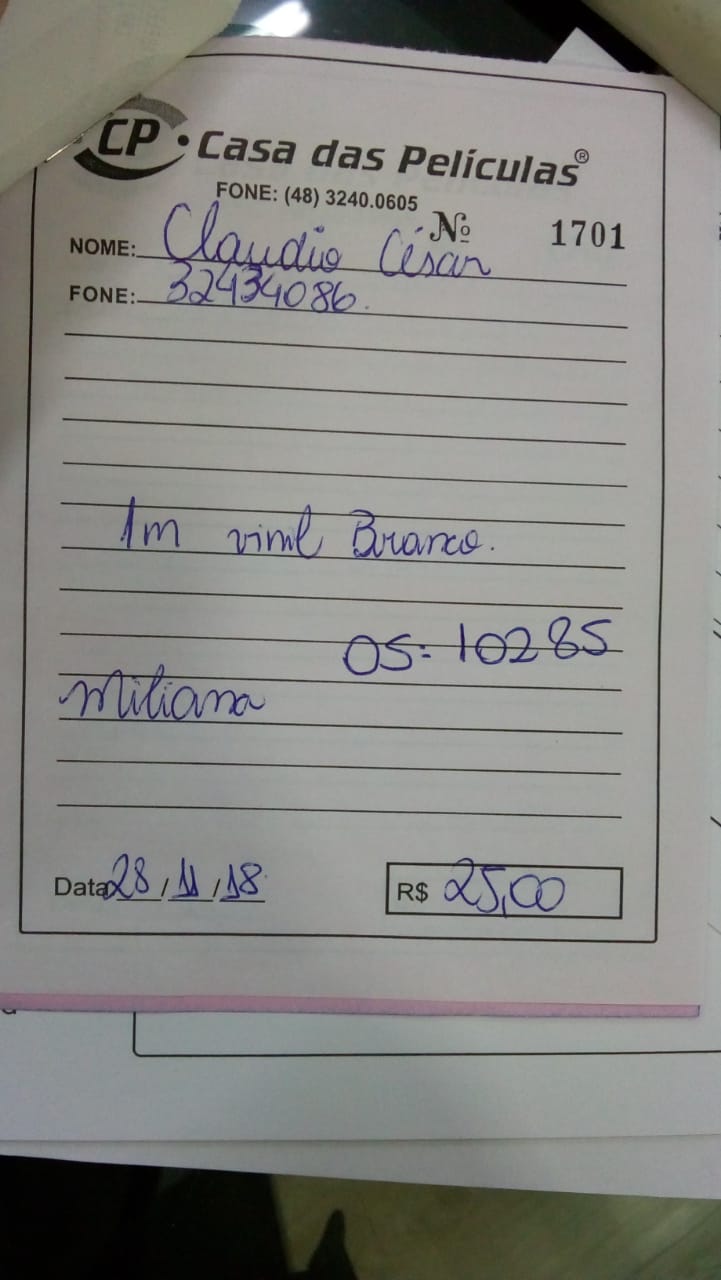 CP • Casa das Películas®
FONE: (48) 3240.0605
Nº 1701
NOME: Claudio César
FONE: 32434086.
1m vinil Branco.
OS: 10285
Miliana
Data 28 / 11 / 18
R$ 25,00